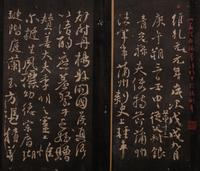 維乾元元年歲次戊戌九月
庚午朔三日壬申第十三叔銀
青光祿夫使持節蒲州諸
軍事蒲州刺史上輕車
都尉丹楊縣開國侯真卿
以清酌庶羞祭于亡姪贈
贊善大夫季明之靈曰惟
爾挺生夙標幼德宗廟瑚
璉階庭蘭玉方憑積善